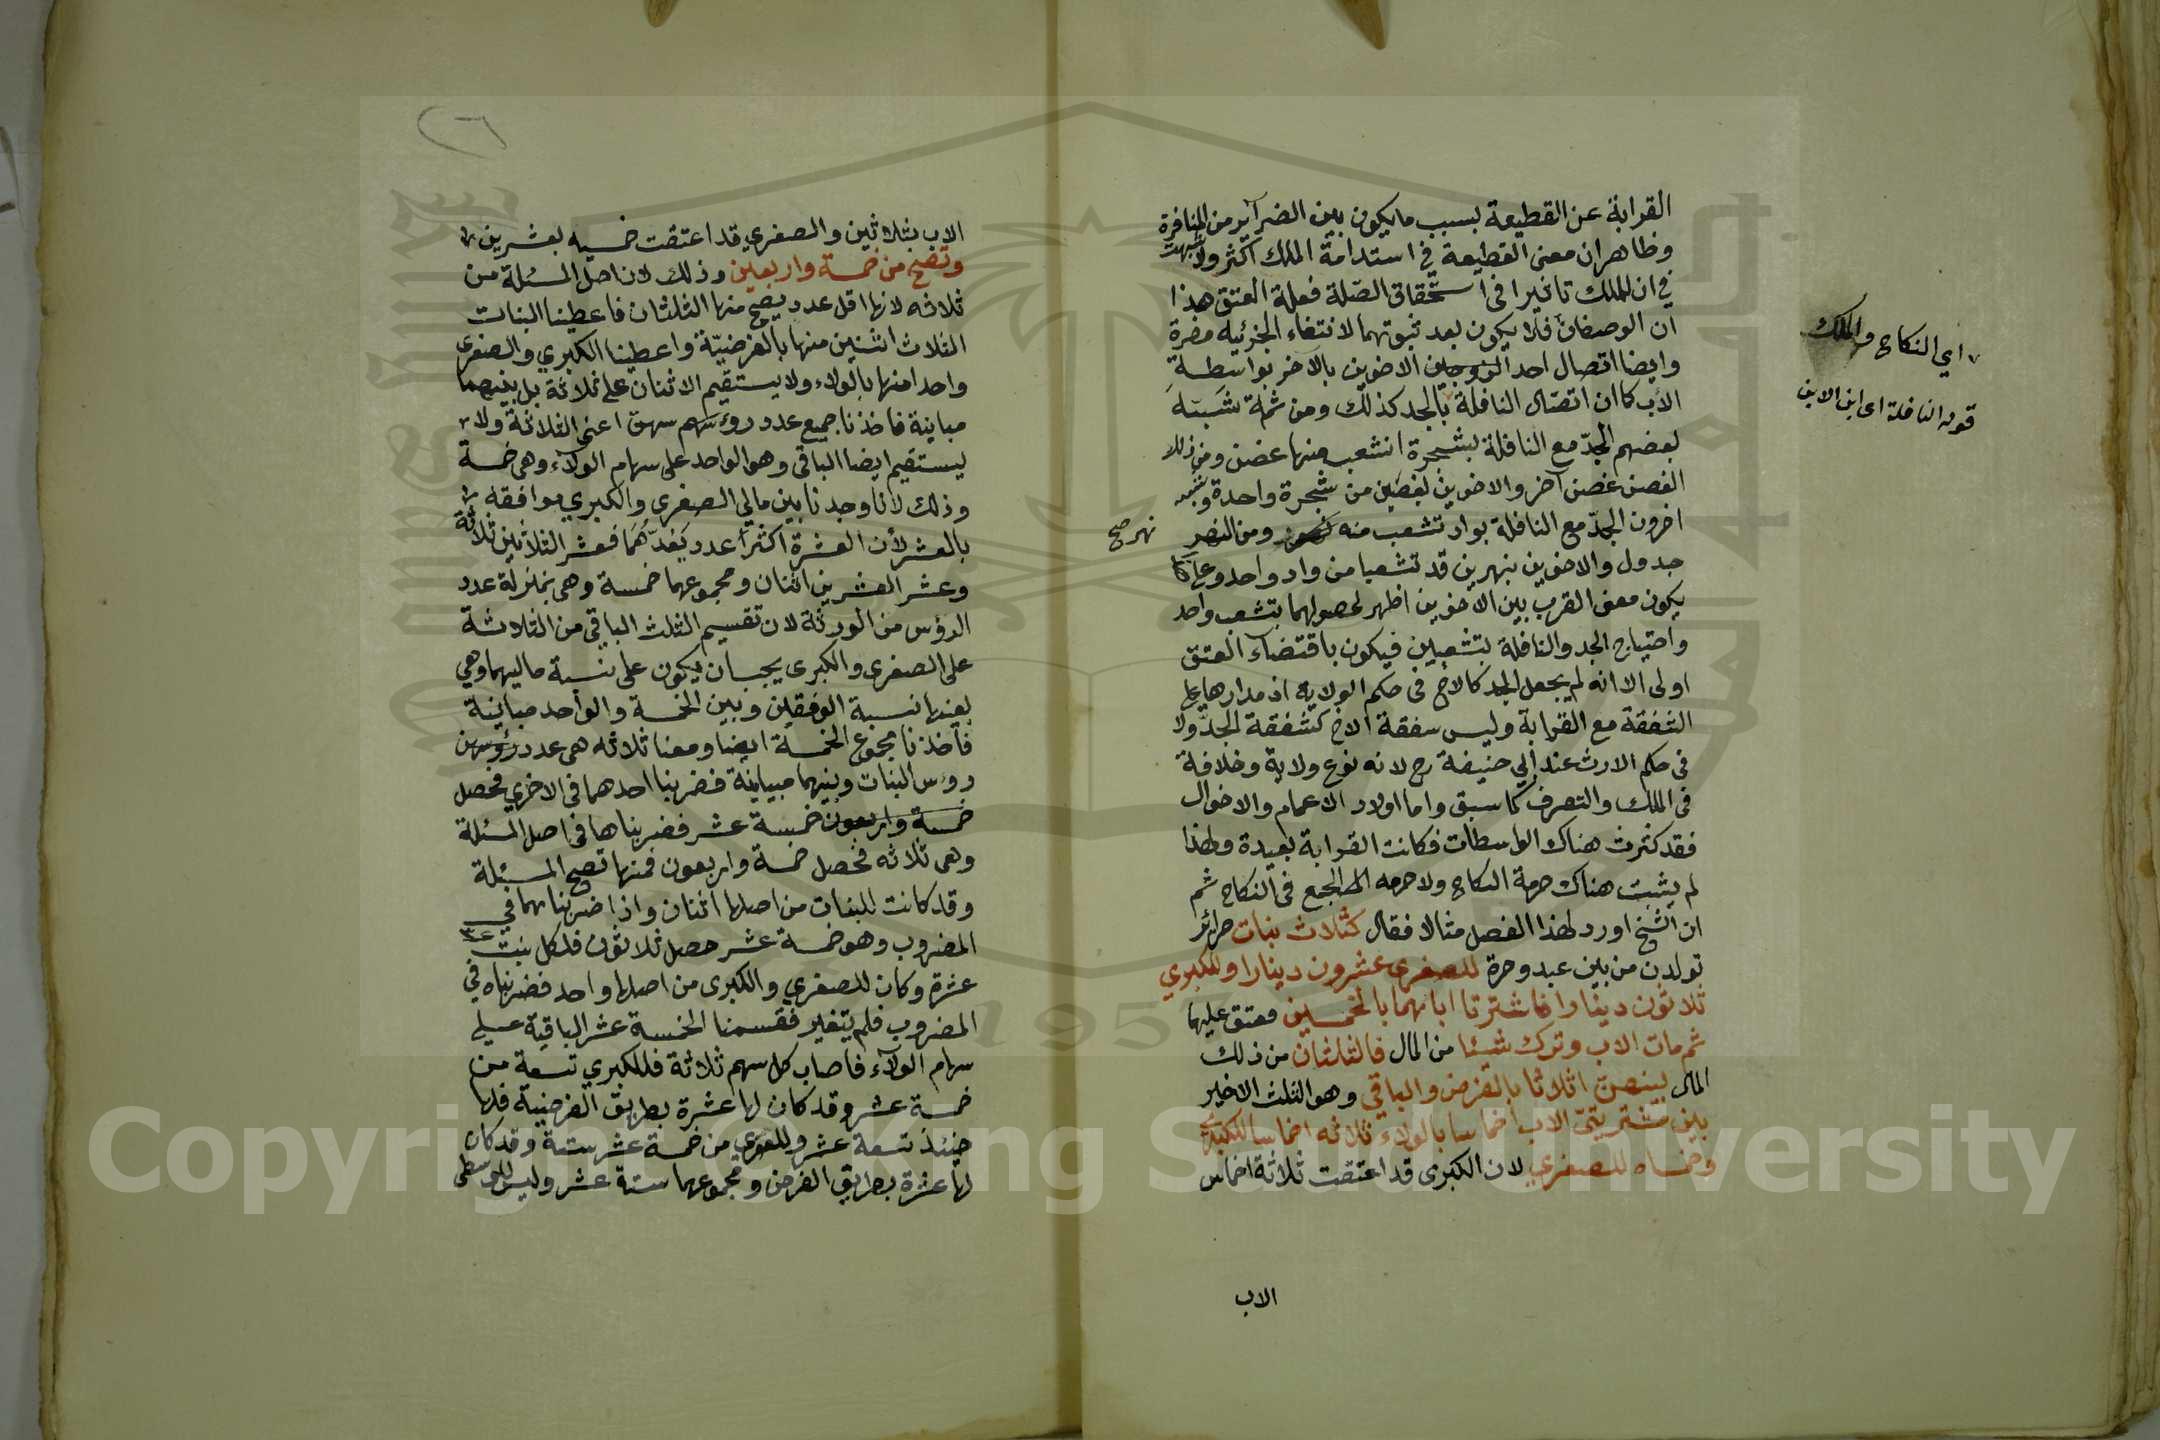 القرابة عن القطيعة بسبب ما يكون بين الضرآير من المنافرة
وظاهر ان معنى القطيعة في استدامة الملك اكثر ولا شبهت
في ان للملك تاثيرا فى استحقاق الصّلة فعلة العتق هذا
ان الوصفان فلا يكون بعد ثبوتهما لانتفاء الجزئيه مضرة
وايضا اتصال احد الاخوين بالآخر بواسطة
الأب كما ان اتصال النافلة بالجد كذلك ومن ثمة شبّه
بعضهم الجدّ مع النافلة بشجرة انشعب منها غصن ومن ذلك
الغصن غصن آخر والاخوين بغصنين من شجرة واحدة وشبه
اخرون الجدّ مع النافلة بواد تشعب منه ومن النهر
جدول والاخوين بنهرين قد تشعبا من واد واحد وعلى
يكون معنى القرب بين الاخوين اظهر لحصولهما بتشعب واحد
واحتياج الجد والنافلة بتشعبين فيكون باقتضآء العتق
اولى الا انه لم يجعل الجد كالاخ فى حكم الولاية اذ مدارها على
الشفقة مع القرابة وليس شفقة الاخ كشفقة الجدّ ولا
فى حكم الارث عند ابي حنيفة رح لانه نوع ولاية وخلافة
فى الملك والتصرف كما سبق واما اولاد الاعمام والاخوال
فقد كثرت هناك الواسطات فكانت القرابة بعيدة ولهذا
لم يثبت هناك حرمة النكاح ولا حرمه الجمع فى النكاح ثم
ان الشيخ اورد لهذا الفصل مثالا فقال كثلاث بنات حرائر
تولدن من بين عبد وحرة للصغرى عشرون دينارا وللكبري
ثلاثون دينارا فاشترتا اباهما بالخمسين فعتق عليهما
ثم مات الاب وترك شيئا من المال فالثلثان من ذلك
المال بينهن اثلاثا بالفرض والباقي وهو الثلث الاخير
بين مشتريتىّ الاب اخماسا بالولاء ثلاثه اخماسا للكبرى
وخمساه للصغري لان الكبرى قد اعتقت ثلاثة اخماس
الاب
اي النكاح والملك
قوله النافلة اى ابن الابن
نهر صح
٢٦
الاب بثلاثين والصغري قد اعتقت خمسيه بعشرين
وتصح من خمسة واربعين وذلك لان اصل المسئلة من
ثلاثه لانها اقل عدد يصح منها الثلثان فاعطينا البنات
الثلاث اثنين منها بالفرضيّة واعطينا الكبري والصغرى
واحدا منها بالولاء ولا يستقيم الاثنان على ثلاثة بل بينهما
مباينة فاخذنا جميع عدد روءسهم سهن اعني الثلاثة ولا
يستقيم ايضا الباقي وهو الواحد على سهام الولاء وهى خمسة
وذلك لأنا وجدنا بين مالي الصغرى والكبري موافقه
بالعشر لأن العشرة اكثر عدد يَعُدّهُمَا فعشر الثلاثين ثلاثة
وعشر العشرين اثنان ومجموعهما خمسة وهى بمنزلة عدد
الرؤس من الورثة لان تقسيم الثلث الباقي من الثلاثة
على الصغرى والكبرى يجب ان يكون على نسبة ماليهما وهي
بعينها نسبة الوفقين وبين الخمسة والواحد مباينة
فأخذنا مجموع الخمسة ايضا ومعنا ثلاثه هى عدد رؤوسهن
رؤس البنات وبينهما مبياينة فضربنا احدهما فى الاخري فحصل
خمسة واربعون خمسة عشر فضربناها فى اصل المسئلة
وهى ثلاثه فحصل خمسة واربعون فمنها تصح المسئلة
وقد كانت للبنات من اصلها اثنان واذا ضربناهما في
المضروب وهو خمسة عشر حصل ثلاثون فلكل بنت
عشرة وكان للصغري والكبرى من اصلها واحد فضربناه في
المضروب فلم يتغير فقسمنا الخمسة عشر الباقية على
سهام الولآء فاصاب كل سهم ثلاثة فللكبري تسعة من
خمسة عشر وقد كان لها عشرة بطريق الفرضية فلها
حينئذ تسعة عشر وللصغري من خمسة عشر ستة وقد كان
لها عشرة بطريق الفرض ومجموعهما ستة عشر وليس للوسطى
Copyright © King Saud University
1957